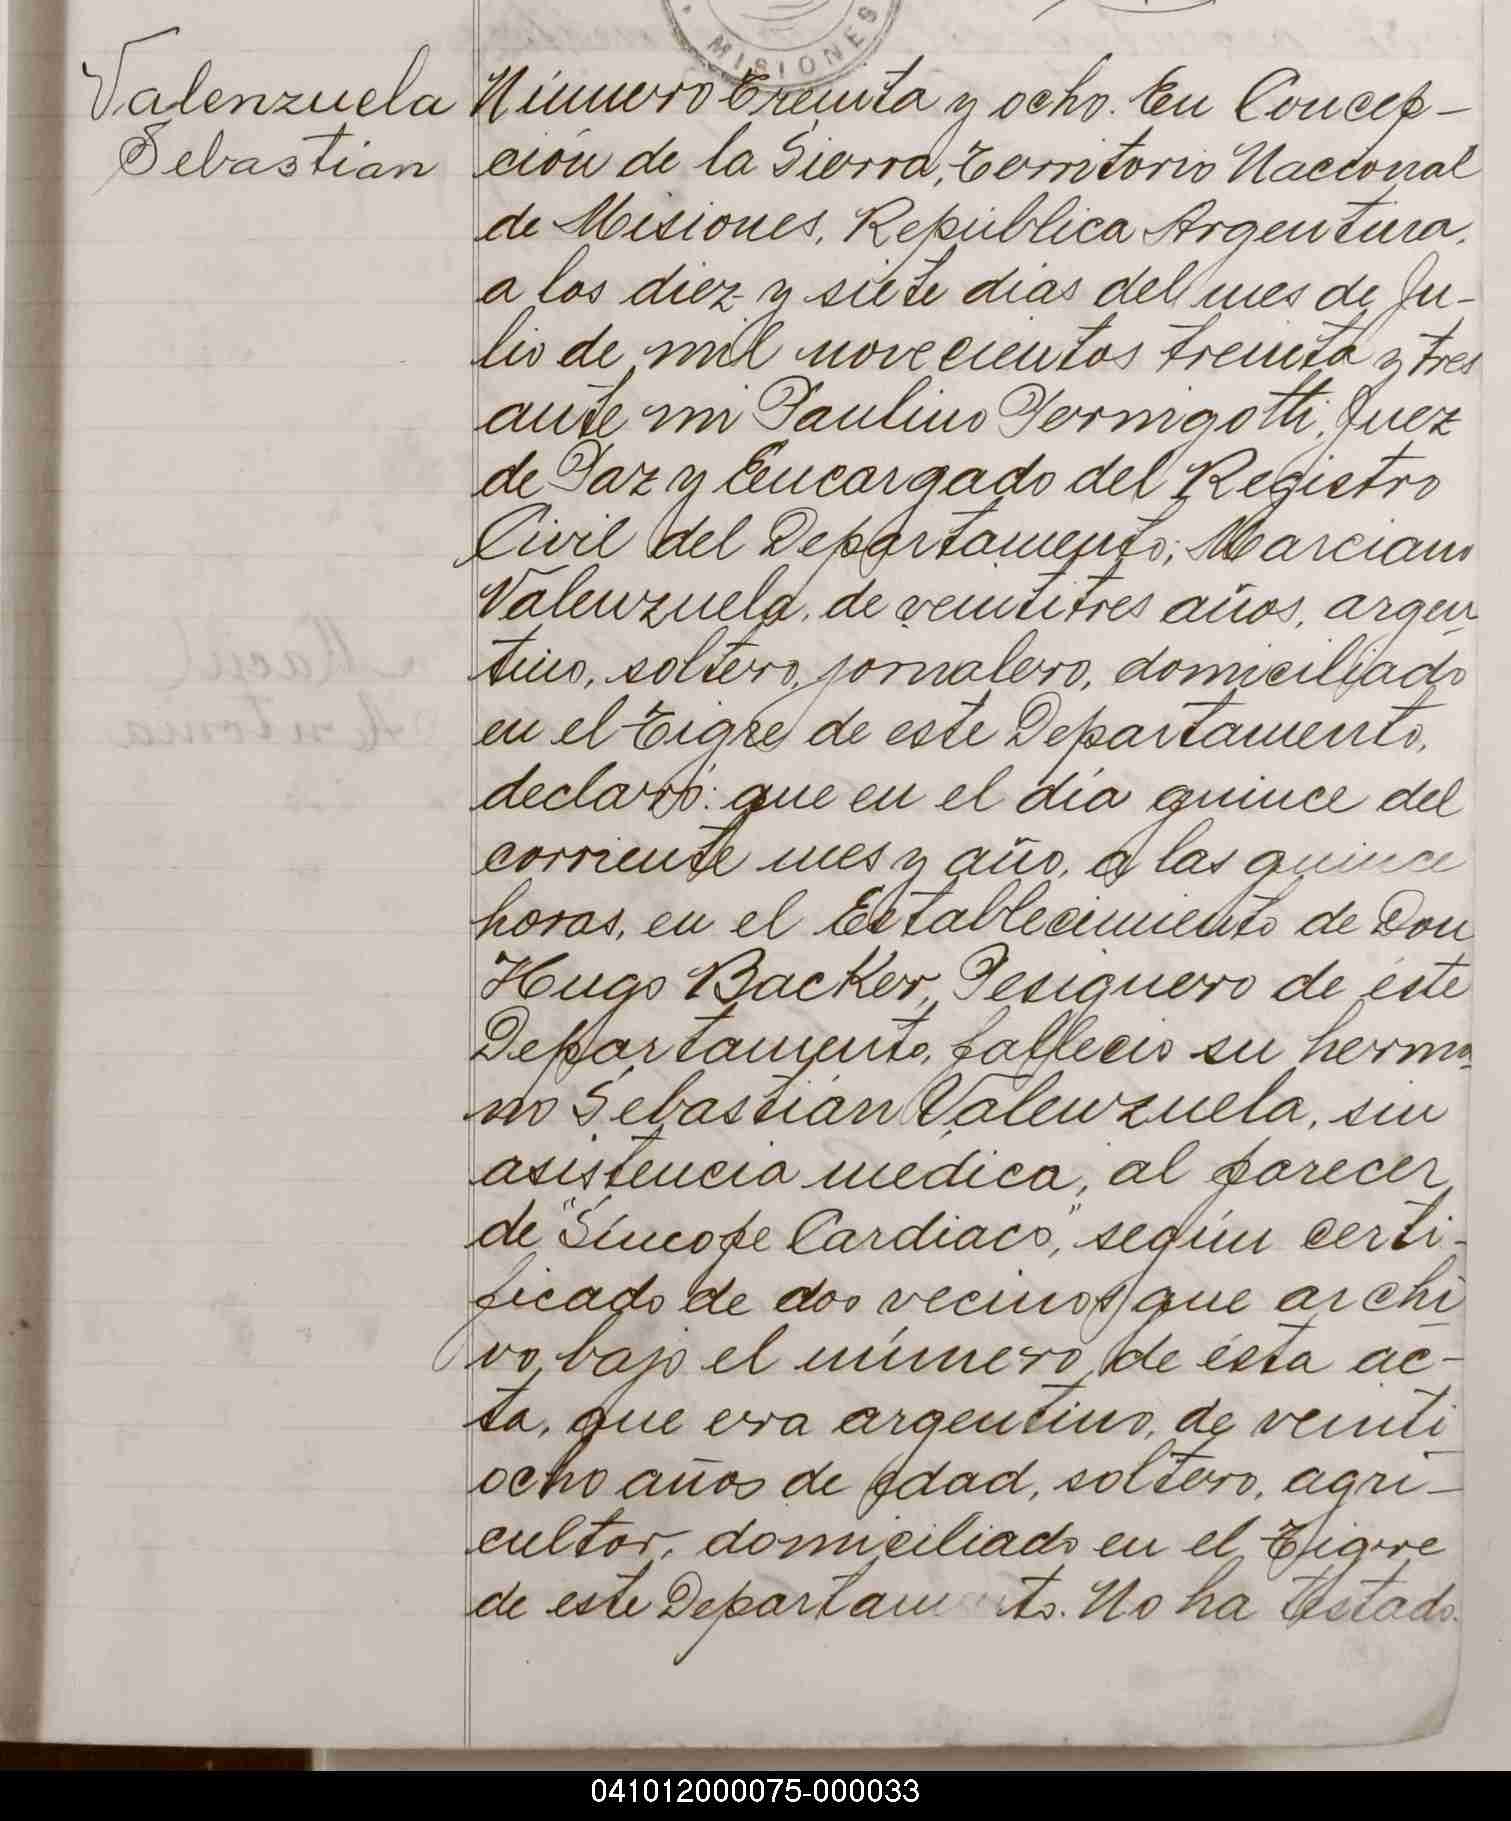 MISIONES
Valenzuela
Sebastian
Número Treinta y ocho. En Concep-
ción de la Sierra, Territorio Nacional
de Misiones, República Argentina,
a los diez y siete dias del mes de Ju-
lio de mil novecientos treinta y tres
ante mi Paulino Pernigotti, Juez
de Paz y Encargado del Registro
Civil del Departamento; Marciano
Valenzuela, de veintitres años, argen
tino, soltero, jornalero, domiciliado
en el Tigre de este Departamento,
declaró: que en el día quince del
corriente mes y año, a las quince
horas, en el Establecimiento de Don
Hugo Backer, Pesiguero de éste
Departamento, falleció su herma
no Sebastián Valenzuela, sin
asistencia medica, al parecer
de "Síncope Cardiaco", según certi-
ficado de dos vecinos que archi
vo bajo el número de ésta ac-
ta, que era argentino, de veinti
ocho años de edad, soltero, agri-
cultor, domiciliado en el Tigre
de este Departamento. No ha testado.
041012000075-000033